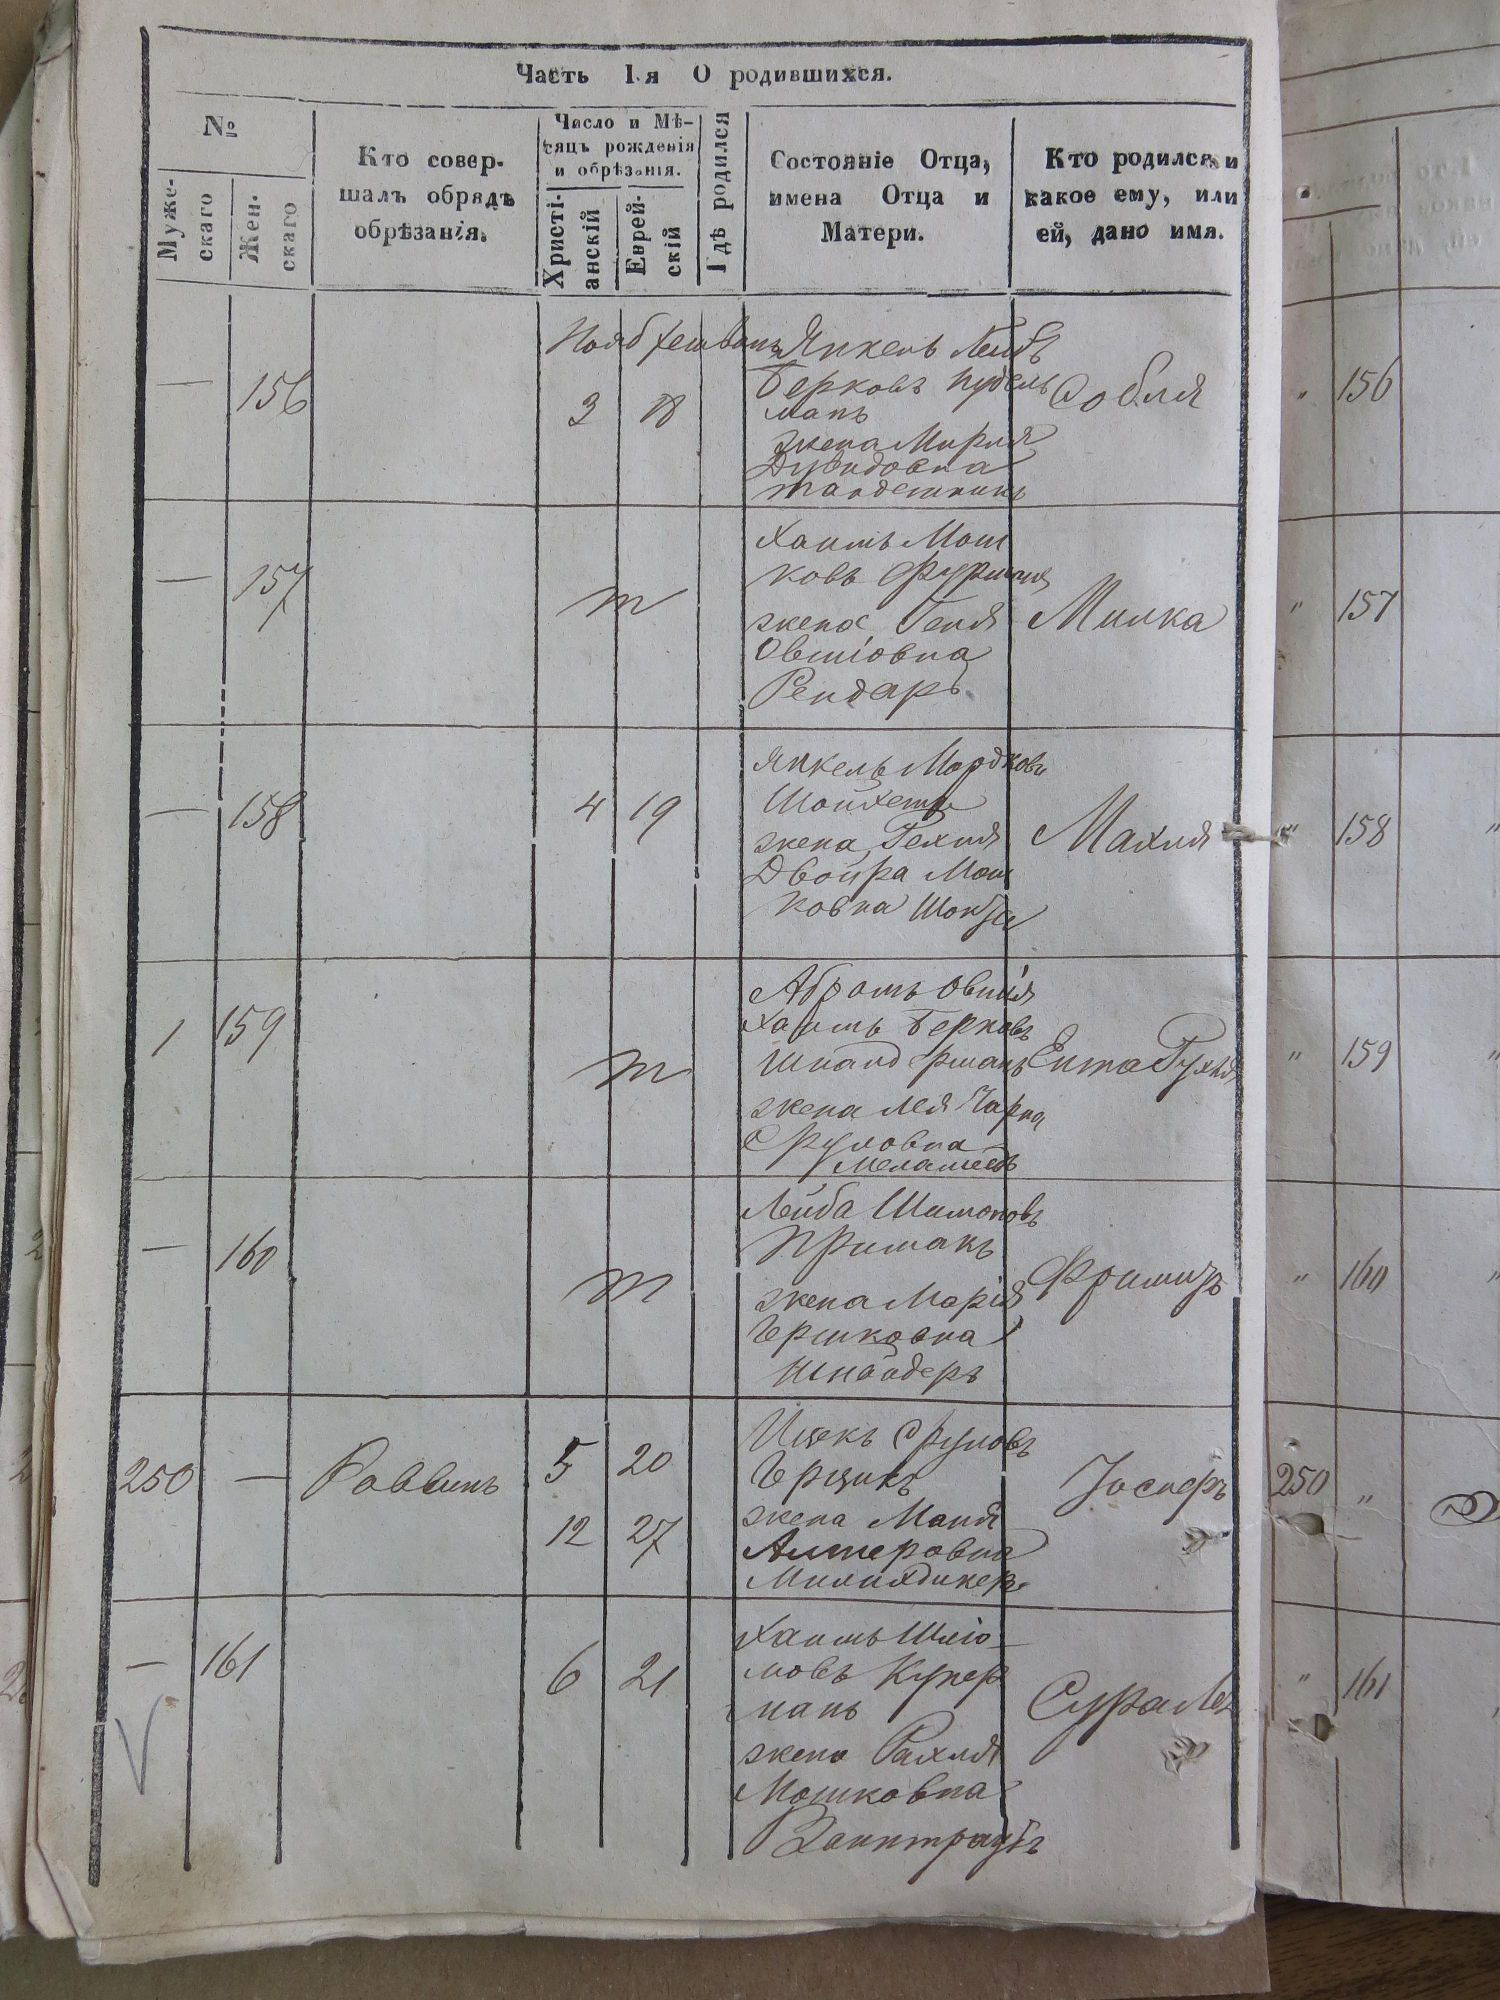 Часть I-я О родившихся.
№
Муже-
скаго
Жен-
скаго
Кто совер-
шалъ обрядъ
обрѣзанія.
Число и Мѣ-
сяцъ рожденія
и обрѣзанія.
Христі-
анскій
Еврей-
скій
Гдѣ родился
Состояніе Отца,
имена Отца и
Матери.
Кто родился и
какое ему, или
ей, дано имя.
Нояб Хешванъ
— 156
3 18
Янкель Лейбъ
Берковъ Пудель
манъ
жена Мирия
Дувидовна
Собля
156
— 157
т
Хаимъ Мош
ковъ Фурманъ
жена Геня
Овшіовна
Рендаръ
Милка
157
— 158
4 19
Янкель Мордковъ
Шойхетъ
жена Рехля
Двойра Мош
ковна
Махля
158
1 159
т
Абрамъ Овшія
Хаимъ Берковъ
жена Лея Чарна
Сруловна
Ента Рухля
159
— 160
т
Лейба Шимоновъ
Примакъ
жена Марія
Гершковна
Шнайдеръ
160
250 —
Раввинъ
5 20
12 27
Ицекъ Сруловъ
жена Маня
Алтеровна
Іосперъ
250
— 161
6 21
Хаимъ Шліо-
мовъ Купер
манъ
жена Рахля
Мошковна
Вантраубъ
Сура Лея
161
V